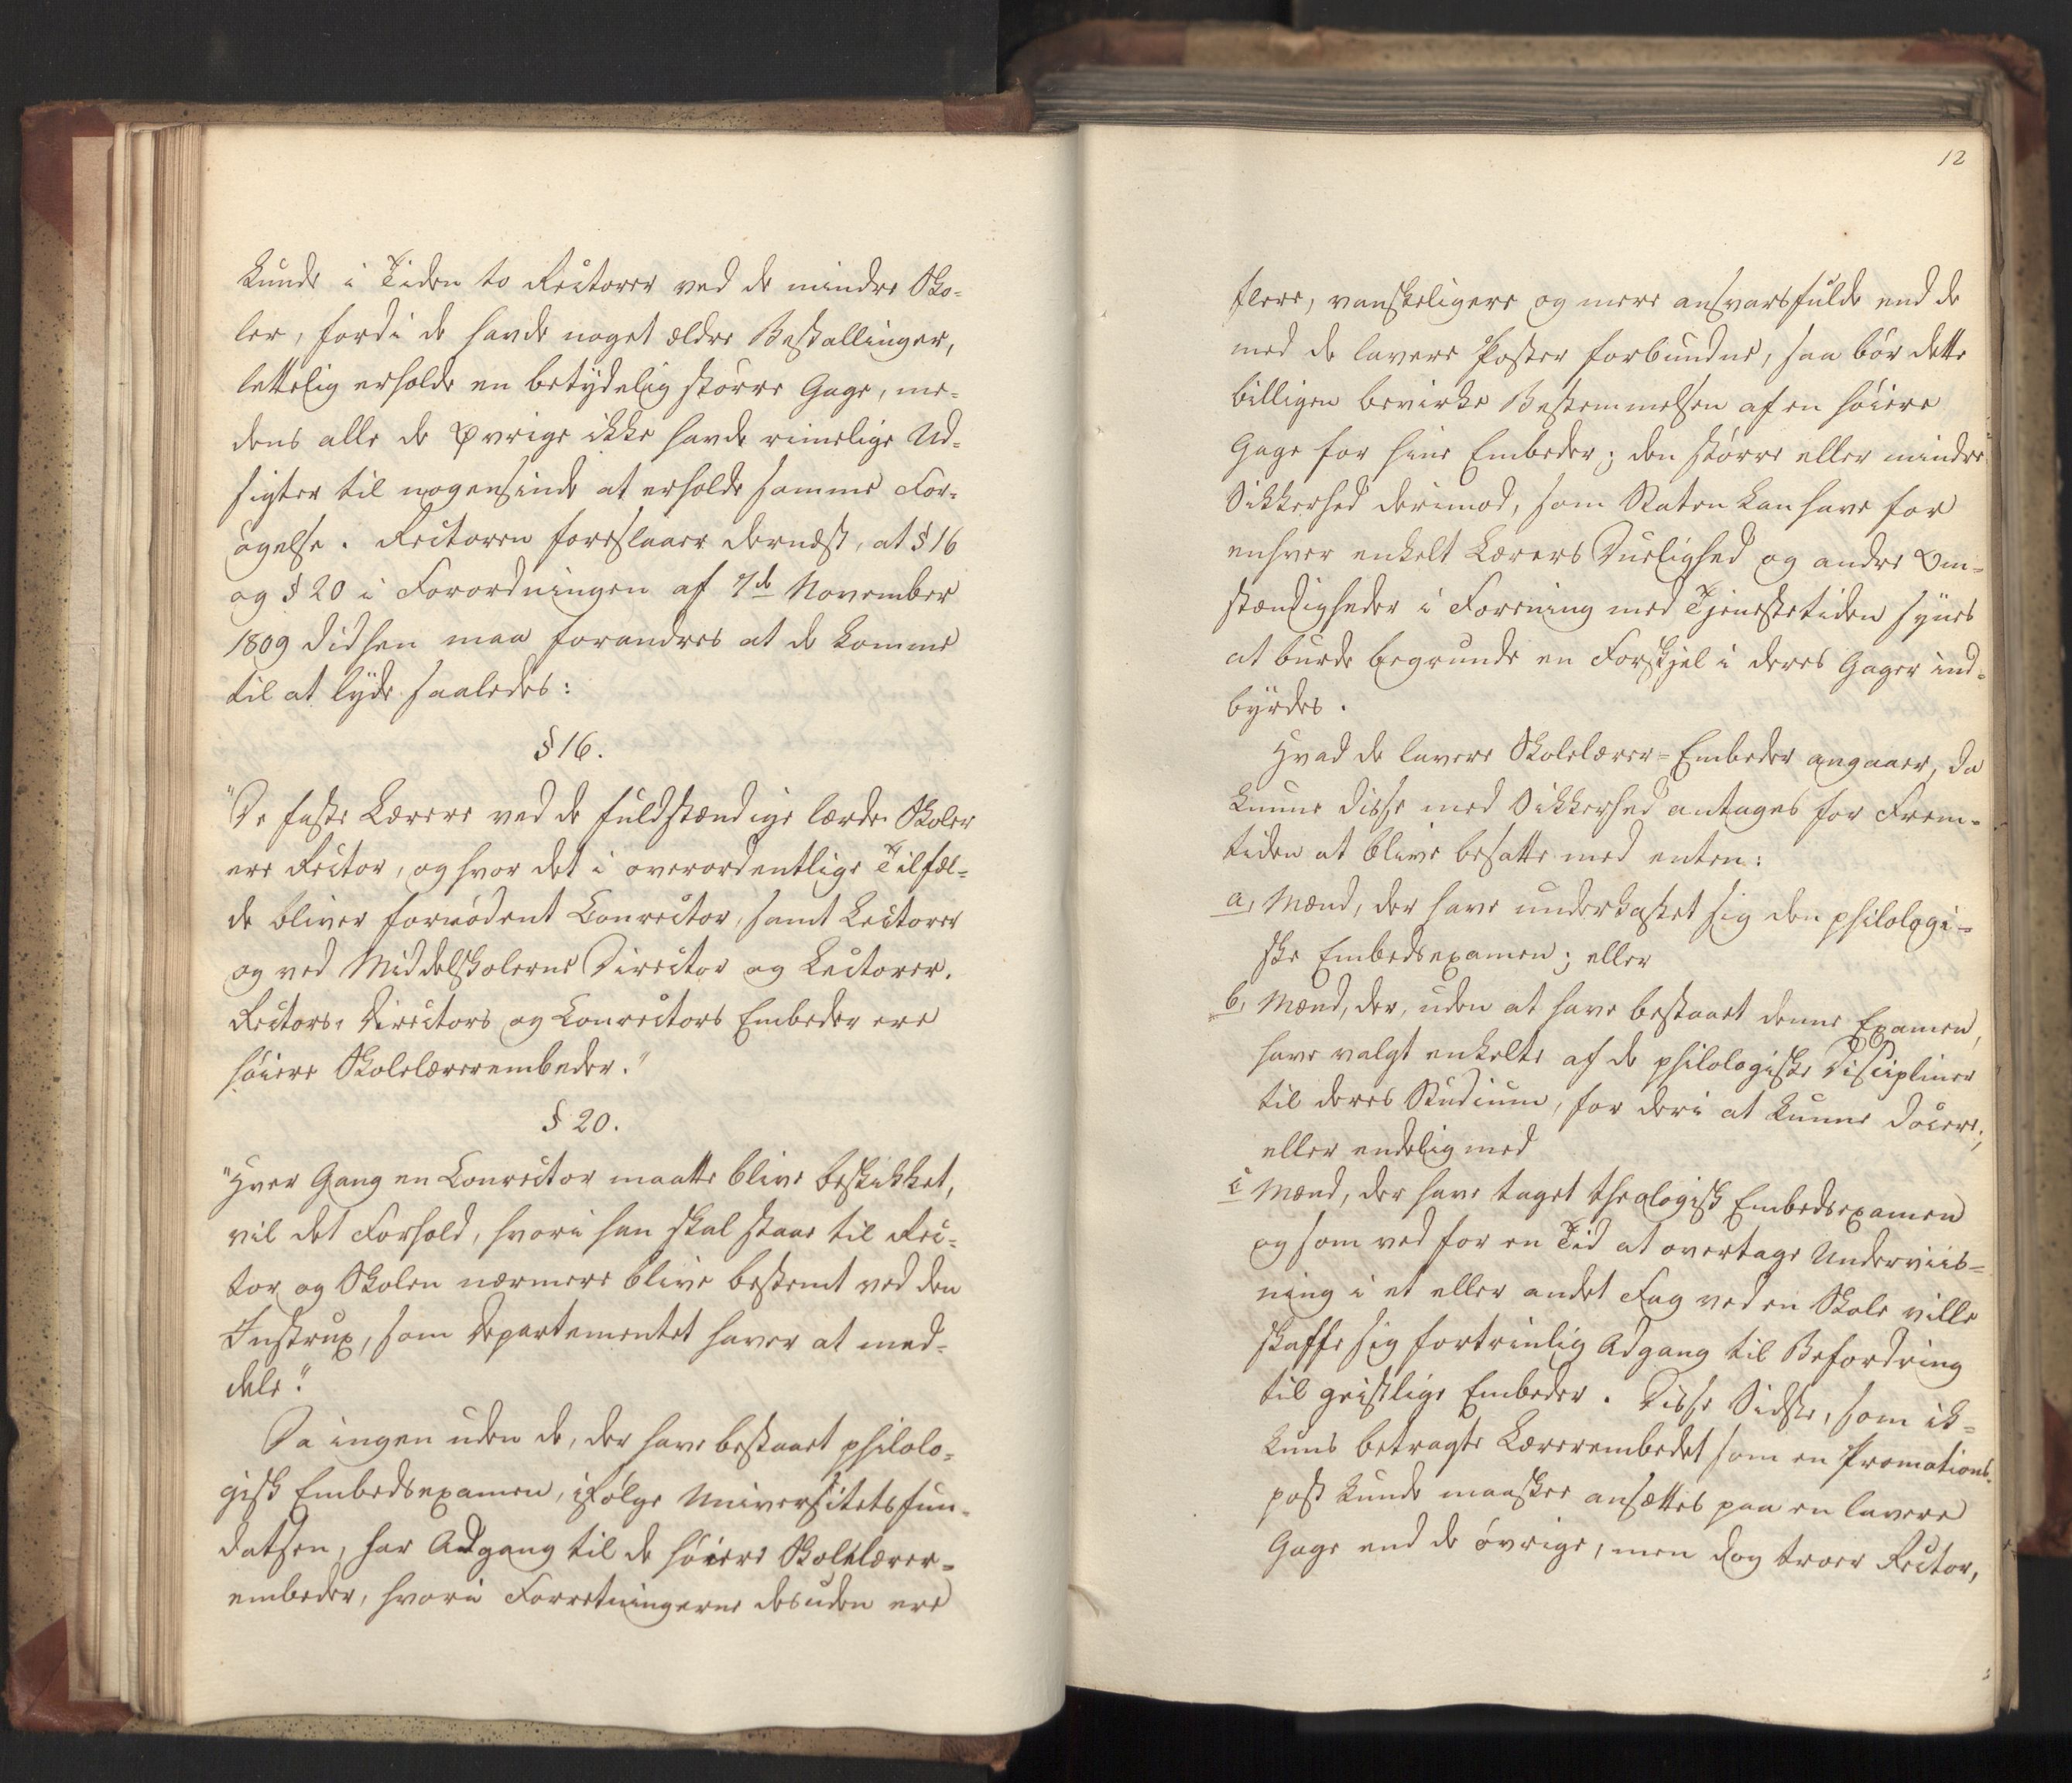 kunde i Tiden to Rectorer ved de mindre Sko-
ler, fordi de havde noget ældre Bestallinger,
lettelig erholde en betydelig større Gage, me-
dens alle de Øvrige ikke havde rimelige Ud-
sigter til nogensinde at erholde samme For-
øgelse. Rectoren foreslaaer dernæst, at § 16
og § 20 i Forordningen af 7de November
1809 didhen maa forandres at de komme
til at lyde saaledes:
§ 16.
"De faste Lærere ved de fuldstændige lærde Skoler
ere Rector, og hvor det i overordentlige Tilfæl-
de bliver fornødent Conrector, samt Lectorer
og ved Middelskolerne Director og Lectorer.
Rectors, Directors og Conrectors Embeder ere
høiere Skolelærerembeder."
§ 20.
"Hver Gang en Conrector maatte blive beskikket,
vil det Forhold, hvori han skal staae til Rec-
tor og Skolen nærmere blive bestemt ved den
Instrux, som Departementet haver at med-
dele."
Da ingen uden de, der have bestaaet philolo-
gisk Embedsexamen, ifølge Universitetsfun-
datsen, har Adgang til de høiere Skolelærer-
embeder, hvori Forretningerne desuden ere
12
flere, vanskeligere og mere ansvarsfulde end de
med de lavere Poster forbundne, saa bør dette
billigen bevirke Bestemmelsen af en høiere
Gage for hine Embeder; den større eller mindre
Sikkerhed derimod, som Staten kan have for
enhver enkelt Lærers Duelighed og andre Om-
stændigheder i Forening med Tjenestetiden synes
at burde begrunde en Forskjel i deres Gager ind-
byrdes.
Hvad de lavere Skolelærer-Embeder angaaer, da
kunne disse med Sikkerhed antages for Frem-
tiden at blive besatte med enten:
a, Mænd, der have underkastet sig den philologi-
ske Embedsexamen; eller
b, Mænd, der, uden at have bestaaet denne Examen,
have valgt enkelte af de philologiske Discipliner
til deres Studium, for deri at kunne docere;
eller endelig med
c Mænd, der have taget theologisk Embedsexamen
og som ved for en Tid at overtage Underviis-
ning i et eller andet Fag ved en Skole ville
skaffe sig fortrinlig Adgang til Befordring
til geistlige Embeder. Disse Sidste, som ik-
kuns betragte Lærerembedet som en Promotions-
post kunde maaskee ansættes paa en lavere
Gage end de øvrige, men dog troer Rector,